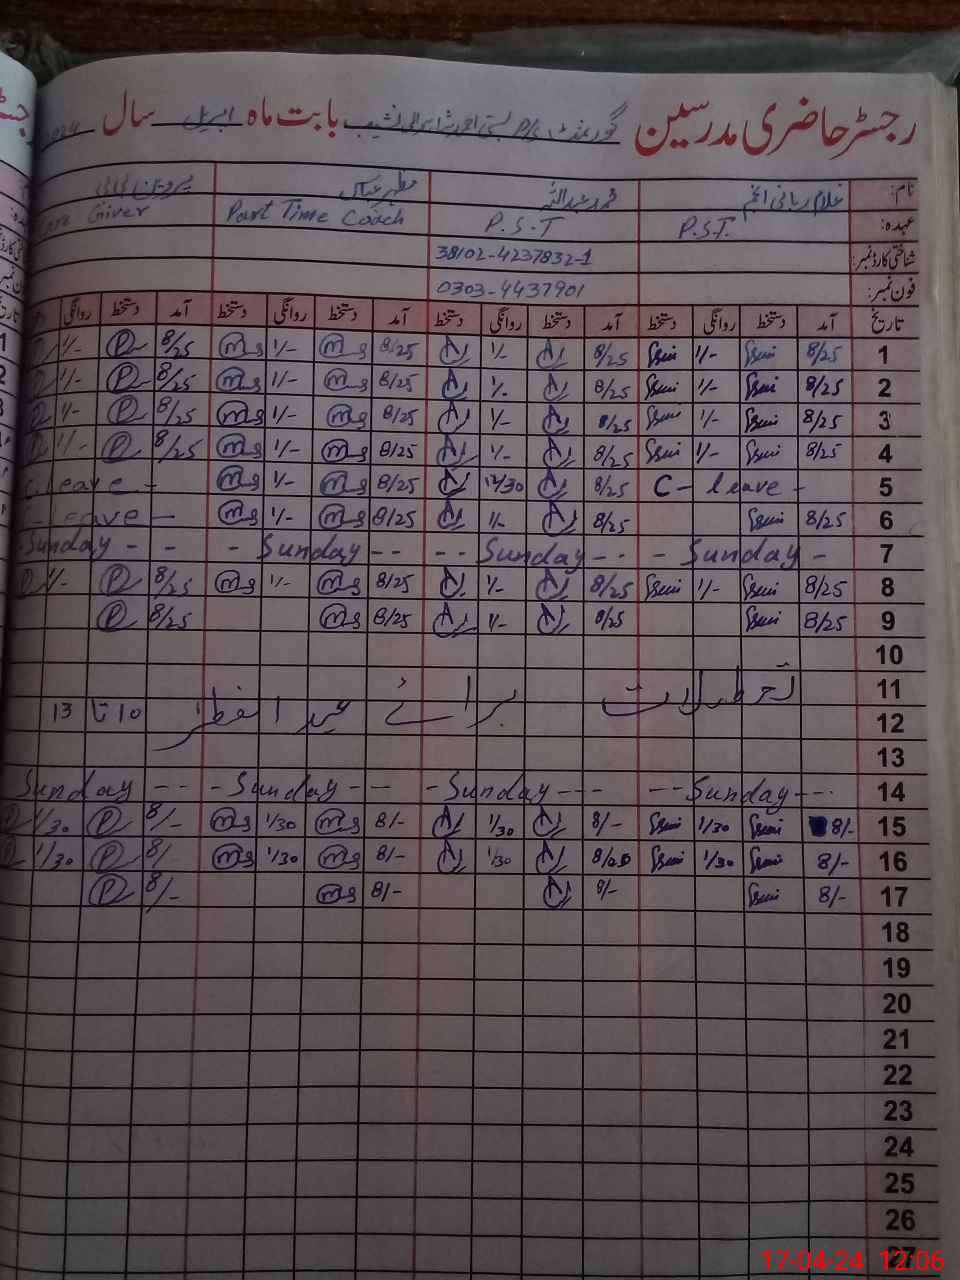 رجسٹر حاضری مدرسین گورنمنٹ P/S بستی احمد نشیب بابت ماہ اپریل سال 2024
نام: غلام ربانی انجم محمد عبداللہ مظہر عباس پروین بی بی
عہدہ: P.S.T. P.S.T Part Time Coach Care Giver
شناختی کارڈ نمبر: 38102-4237832-1
فون نمبر: 0303-4437901
تاریخ آمد دستخط روانگی دستخط آمد دستخط روانگی دستخط آمد دستخط روانگی دستخط آمد دستخط روانگی
1 8/25 1/- 8/25 1/- 8/25 1/- 8/25 1/-
2 8/25 1/- 8/25 1/- 8/25 1/- 8/25 1/-
3 8/25 1/- 8/25 1/- 8/25 1/- 8/25 1/-
4 8/25 1/- 8/25 1/- 8/25 1/- 8/25 1/-
5 C - leave - 8/25 12/30 8/25 1/- C. leave -
6 8/25 8/25 1/- 8/25 1/- C - leave -
7 - Sunday - - - Sunday - - - Sunday - - - Sunday - -
8 8/25 1/- 8/25 1/- 8/25 1/- 8/25 1/-
9 8/25 8/25 1/- 8/25 8/25
10
11 تعطیلات برائے عید الفطر 10 تا 13
12
13
14 - - Sunday - - - - Sunday - - - - Sunday - - Sunday - -
15 8/- 1/30 8/- 1/30 8/- 1/30 8/- 1/30
16 8/- 1/30 8/ 1/30 8/- 1/30 8/- 1/30
17 8/- 8/- 8/- 8/-
18
19
20
21
22
23
24
25
26
27
17-04-24 12:06